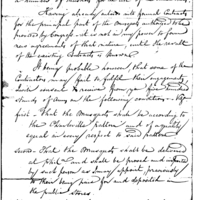 Having already entered into several Contracts
for the principal part of the Muskets authorized to be
provided by Congress it is not in my power to form
new agreements of that nature, until the result
of the existing Contracts is known.
It being probable however, that some of the
Contractors may fail to fulfill their engagements,
I will consent to receive from you five hundred
Stands of Arms on the following conditions. Viz
first. That the Muskets shall be according to
the Charleville pattern and of a quality
equal in every respect to said pattern
Second. That the Muskets shall be delivered
at and shall be proved and inspected
by such person as I may appoint previously
to their being paid for and deposited in
the public Stores